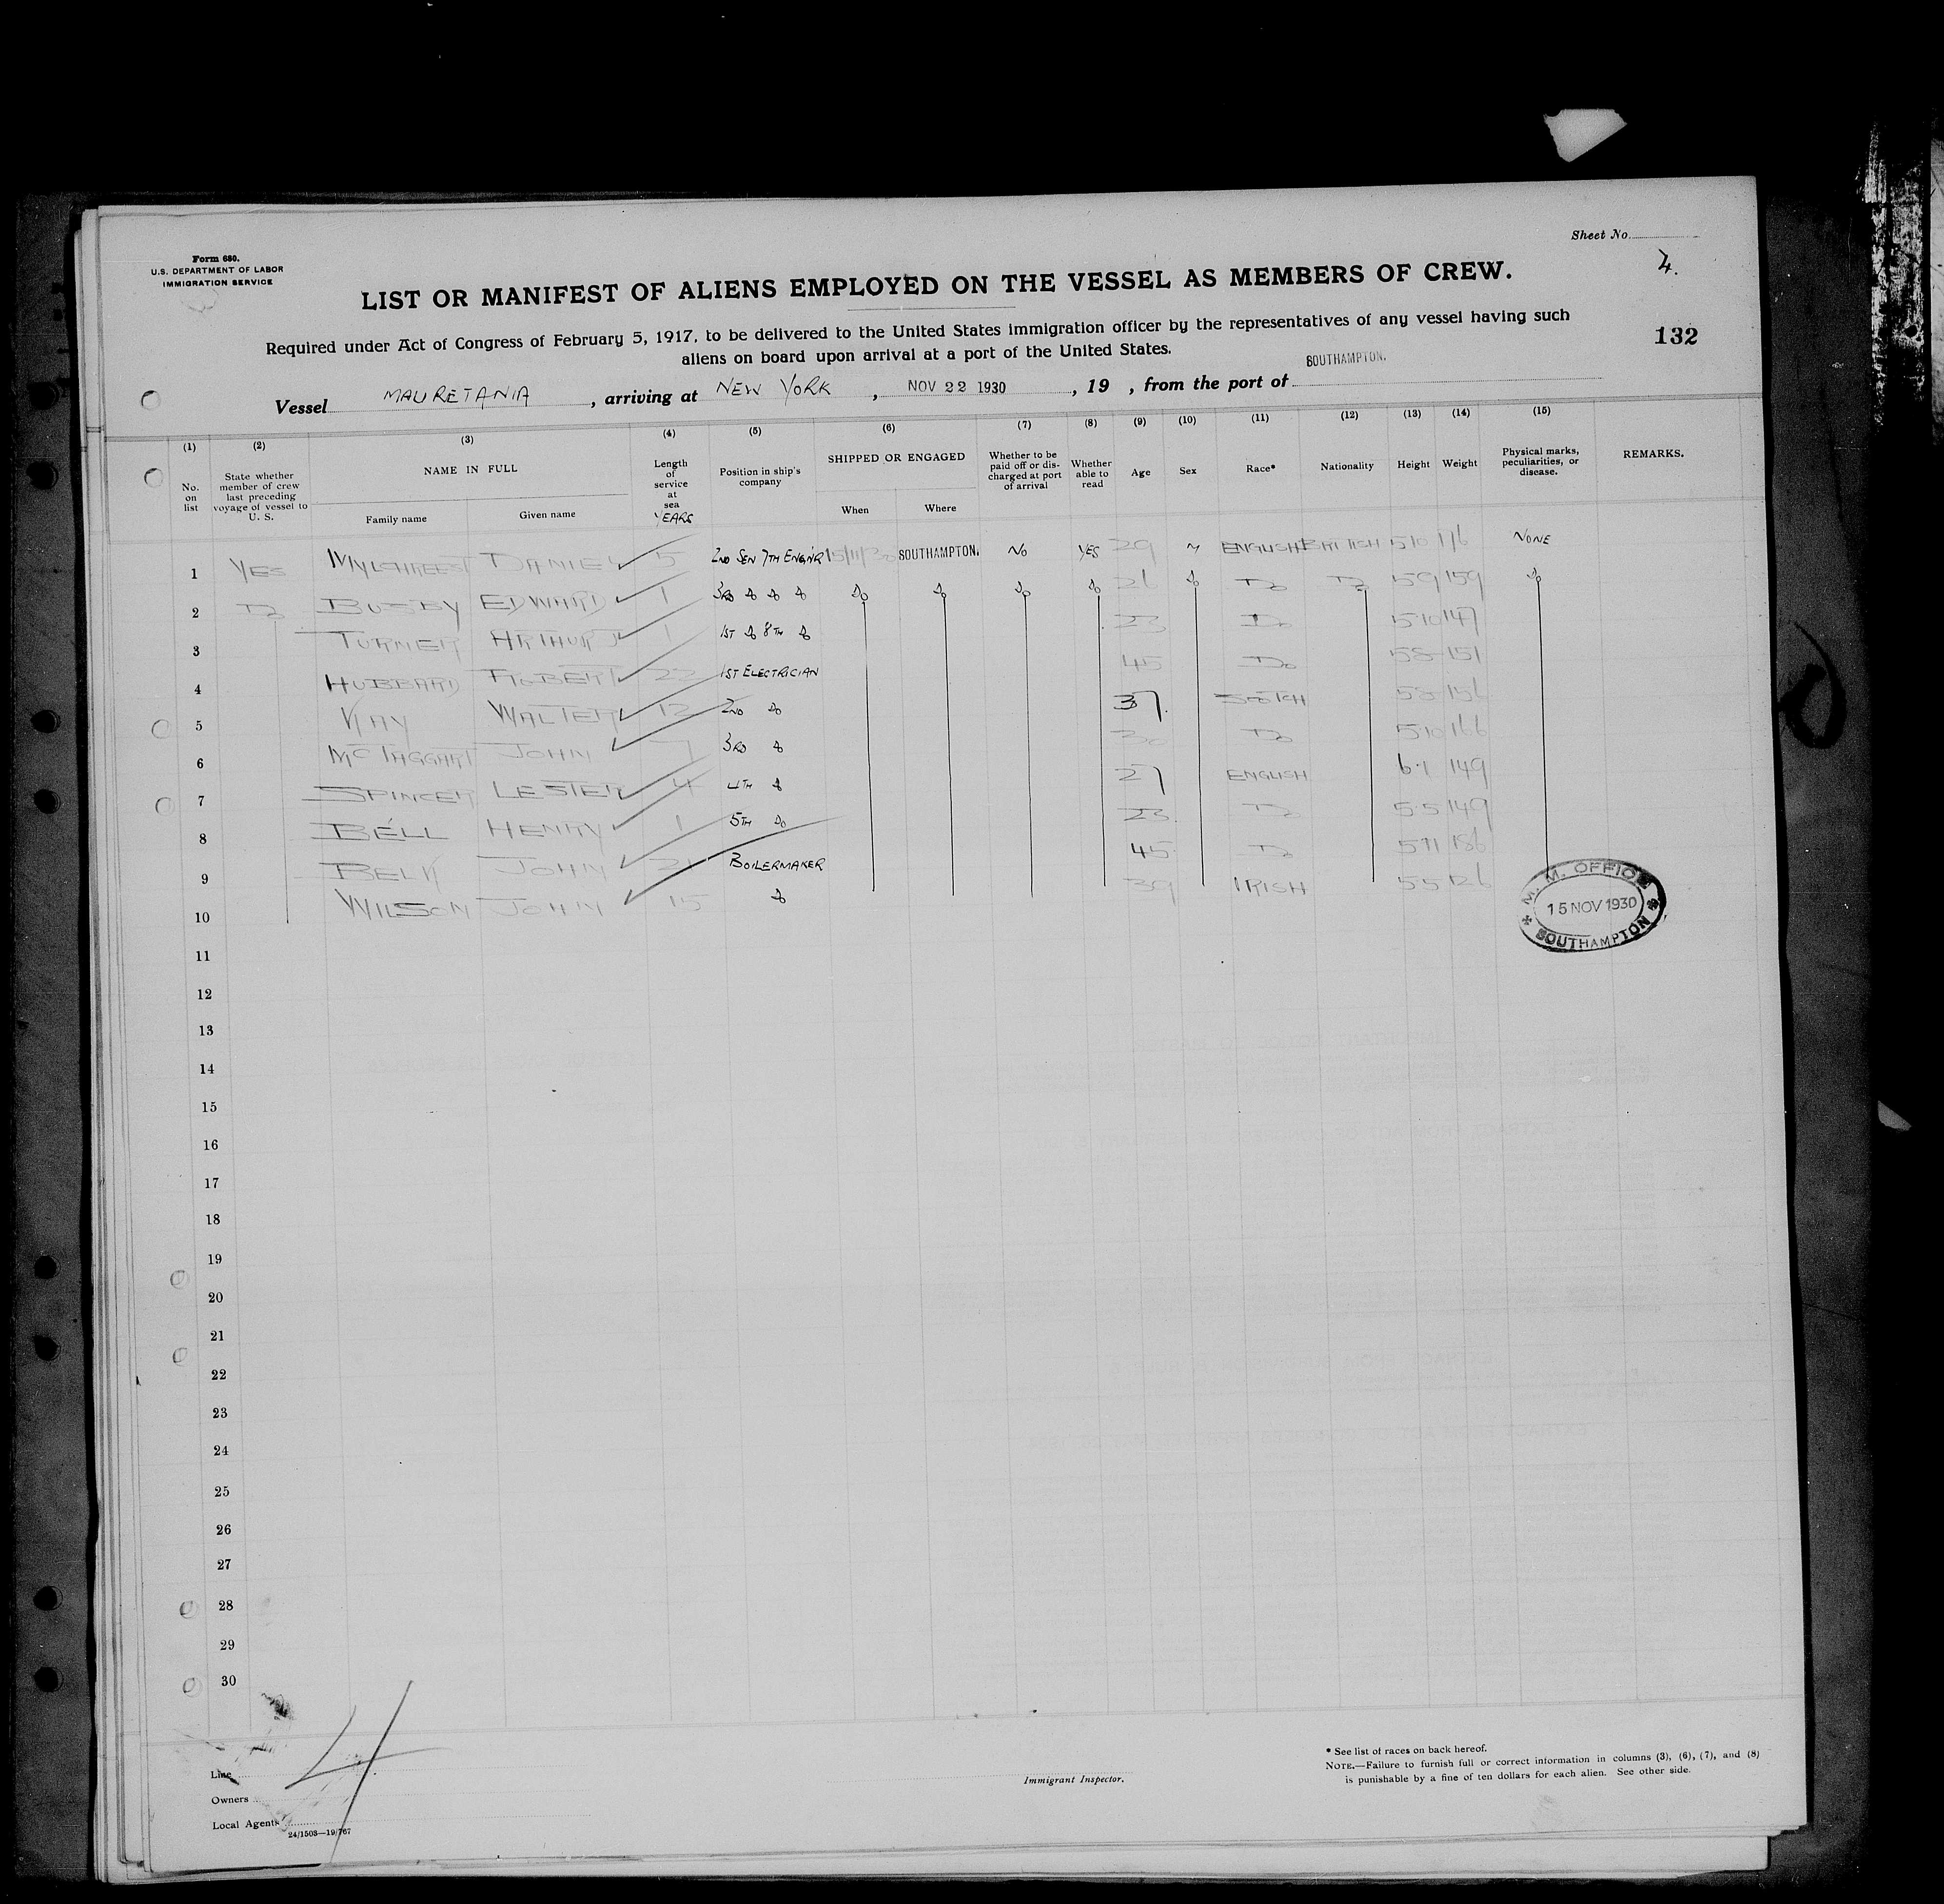 Sheet No.
4.
Form 680.
U.S. DEPARTMENT OF LABOR
IMMIGRATION SERVICE
LIST OR MANIFEST OF ALIENS EMPLOYED ON THE VESSEL AS MEMBERS OF CREW.
Required under Act of Congress of February 5, 1917, to be delivered to the United States immigration officer by the representatives of any vessel having such
aliens on board upon arrival at a port of the United States.
132
Vessel MAURETANIA, arriving at NEW YORK, NOV 22 1930, 19 , from the port of SOUTHAMPTON.
(1) (2) (3) (4) (5) (6) (7) (8) (9) (10) (11) (12) (13) (14) (15)
No. on list
State whether member of crew last preceding voyage of vessel to U. S.
NAME IN FULL
Family name
Given name
Length of service at sea
YEARS
Position in ship's company
SHIPPED OR ENGAGED
When
Where
Whether to be paid off or discharged at port of arrival
Whether able to read
Age
Sex
Race*
Nationality
Height
Weight
Physical marks, peculiarities, or disease.
REMARKS.
1 YES MYLCHREEST DANIEL 5 2ND SEN 7TH ENGNR 15/11/30 SOUTHAMPTON. NO YES 29 M ENGLISH BRITISH 5 10 176 NONE
2 Do BUSBY EDWARD 1 3RD do do do do do do do 26 do Do Do 5 9 159 do
3 TURNER ARTHUR J 1 1ST do 8TH do 23 Do 5 10 147
4 HUBBARD ROBERT 22 1ST ELECTRICIAN 45 Do 5 8 151
5 KAY WALTER 12 2ND do 37 SCOTCH 5 8 156
6 McTAGGART JOHN 7 3RD do 30 Do 5 10 166
7 SPINCER LESTER 4 4TH do 27 ENGLISH 6 1 149
8 BELL HENRY 1 5TH do 23 Do 5 5 149
9 BELK JOHN 21 BOILERMAKER 45 Do 5 11 186
10 WILSON JOHN 15 do 39 IRISH 5 5 126
M. M. OFFICE
15 NOV 1930
SOUTHAMPTON
11
12
13
14
15
16
17
18
19
20
21
22
23
24
25
26
27
28
29
30
4
Line
Owners
Local Agents
24/1508—19/767
Immigrant Inspector.
* See list of races on back hereof.
NOTE.—Failure to furnish full or correct information in columns (3), (6), (7), and (8)
is punishable by a fine of ten dollars for each alien. See other side.